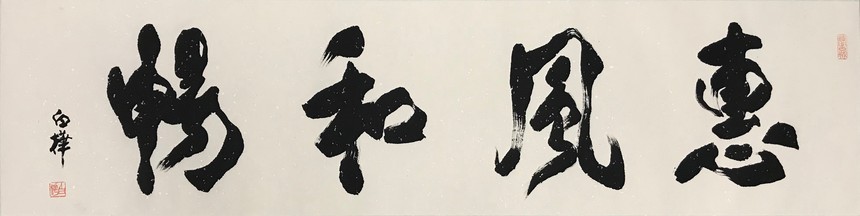 惠風和暢
白樺